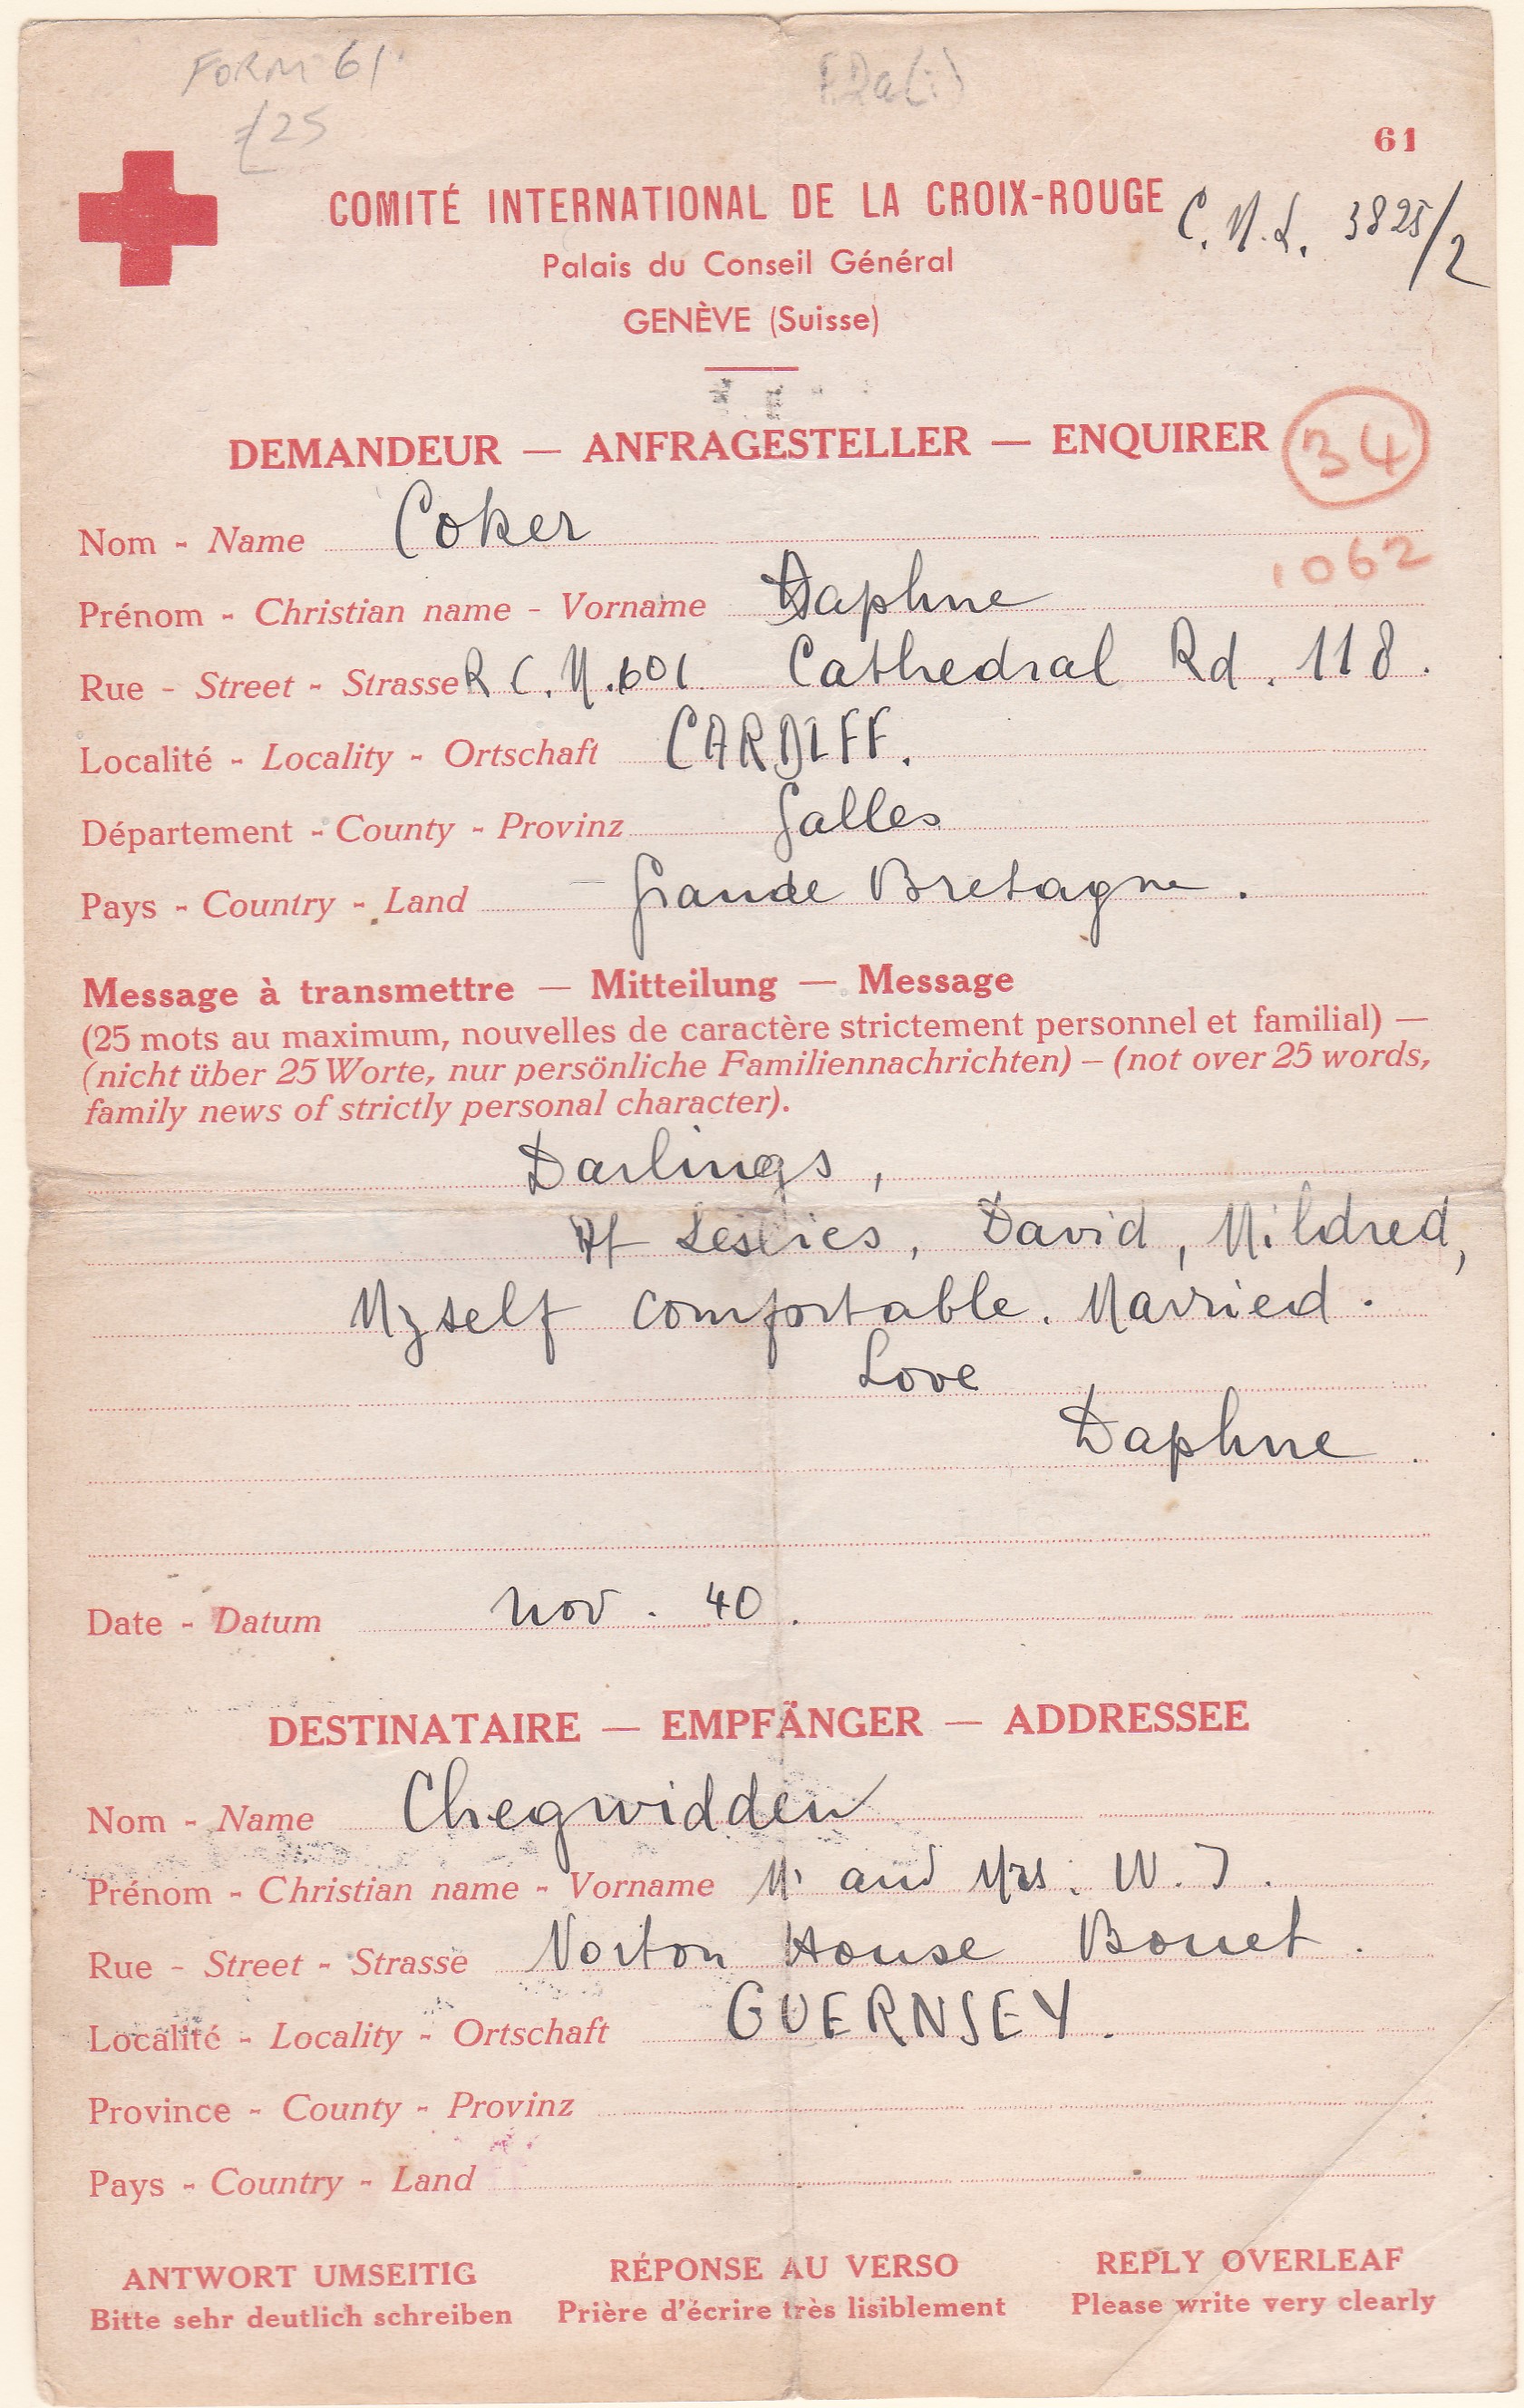 FORM 61
£25
61
COMITÉ INTERNATIONAL DE LA CROIX-ROUGE
C.M.L. 3825/2
Palais du Conseil Général
GENÈVE (Suisse)
DEMANDEUR — ANFRAGESTELLER — ENQUIRER
34
Nom - Name Coker
1062
Prénom - Christian name - Vorname Daphne
Rue - Street - Strasse R C. M. 601 Cathedral Rd. 118.
Localité - Locality - Ortschaft CARDIFF.
Département - County - Provinz Galles
Pays - Country - Land Grande Bretagne.
Message à transmettre — Mitteilung — Message
(25 mots au maximum, nouvelles de caractère strictement personnel et familial) —
(nicht über 25 Worte, nur persönliche Familiennachrichten) — (not over 25 words,
family news of strictly personal character).
Darlings,
At Leslies, David, Mildred,
Myself comfortable. Married.
Love
Daphne.
Date - Datum Nov. 40.
DESTINATAIRE — EMPFÄNGER — ADDRESSEE
Nom - Name Chegwidden
Prénom - Christian name - Vorname Mr and Mrs. W. J.
Rue - Street - Strasse Norton House Bouet.
Localité - Locality - Ortschaft GUERNSEY.
Province - County - Provinz
Pays - Country - Land
ANTWORT UMSEITIG RÉPONSE AU VERSO REPLY OVERLEAF
Bitte sehr deutlich schreiben Prière d'écrire très lisiblement Please write very clearly